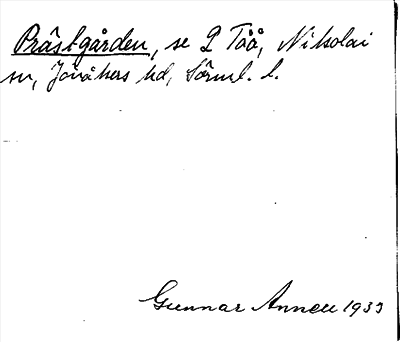 Prästgården, se 2 Tåå, Nikolai
sn, Jönåkers hd, Sörml. l.
Gunnar Annell 1933